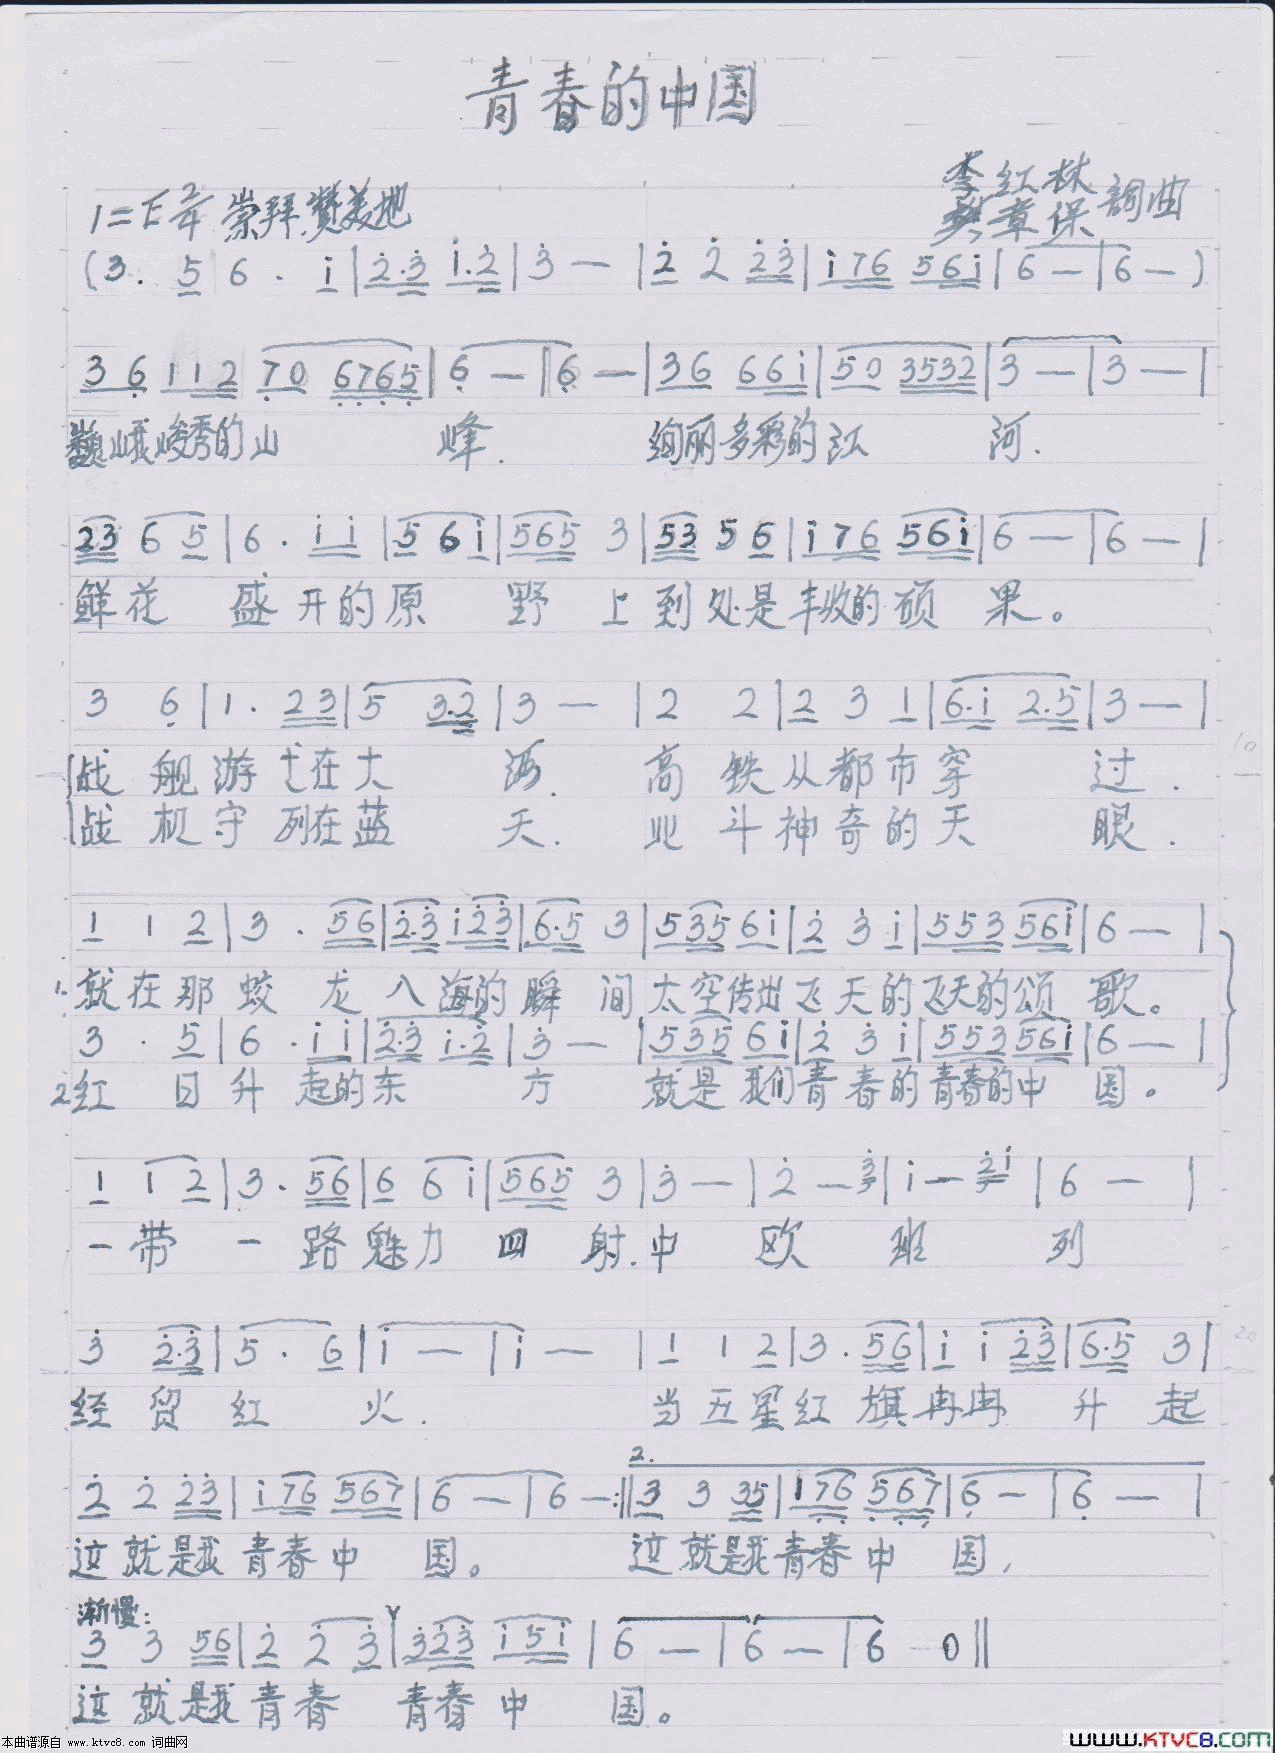 青春的中国
李红林
1=E 2/4 崇拜.赞美地
樊章保 词曲
(3. 5|6. i|2.3 i.2|3 —|2 2 23|i76 56i|6 —|6 —)
36 112 70 6765|6 —|6 —|36 66i|50 3532|3 —|3 —|
巍峨峻秀的山 峰. 绚丽多彩的江 河.
23 6 5|6. i i|5 6 i|565 3|53 5 6|i76 56i|6 —|6 —|
鲜花 盛开的原 野 上到处是丰收的硕 果。
3 6|1. 23|5 3.2|3 —|2 2|2 3 1|6.i 2.5|3 —|
战舰游弋在大 海. 高铁从都市穿 过.
战机守列在蓝 天. 北斗神奇的天 眼.
1 1 2|3. 56|2.3 i23|6.5 3|535 6i|2 3 i|553 56i|6 —|
1.就在那蛟龙入海的瞬间太空传出飞天的飞天的颂歌。
3. 5|6. i i|2.3 i.2|3 —|535 6i|2 3 i|553 56i|6 —|
2.红日升起的东 方 就是我们青春的青春的中国。
1 i 2|3. 56|6 6 i|565 3|3 —|2 — 3|i — 2i|6 —|
一带一路魅力四射.中欧班列
3 2.3|5. 6|i —|i —|1 1 2|3. 56|i i 23|6.5 3|
经贸红火. 当五星红旗冉冉升起
2.
2 2 23|i76 567|6 —|6 —:||3 3 35|176 567|6 —|6 —|
这就是我青春中国。 这就是我青春中国,
渐慢:
3 3 56|2 2 3|323 i5i|6 —|6 —|6 0||
这就是我青春 青春中国。
本曲谱源自 www.ktvc8.com 词曲网
www.KTVC8.com